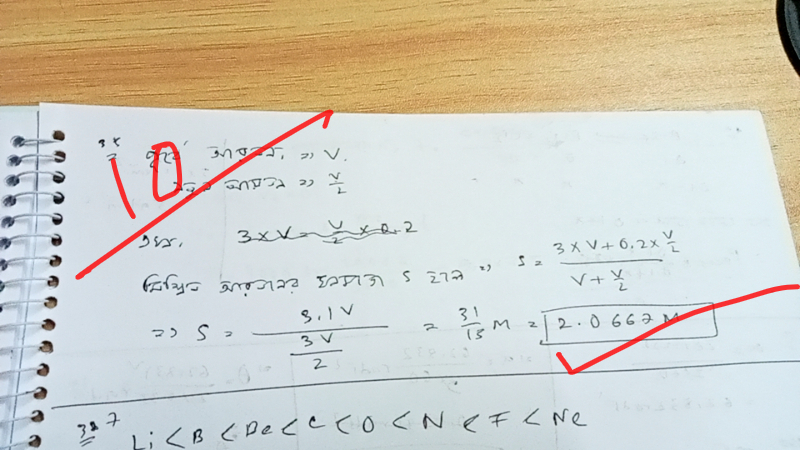 পূর্বে আয়তন, => V.
নতুন আয়তন => V/2
এখন, 3 × V = V/2 × 0.2
মিশ্রিত দ্রবণের ঘনমাত্রা S হলে => S = (3 × V + 0.2 × V/2) / (V + V/2)
=> S = 3.1V / (3V/2) = 31/15 M = 2.0667 M
10
Li < B < Be < C < O < N < F < Ne